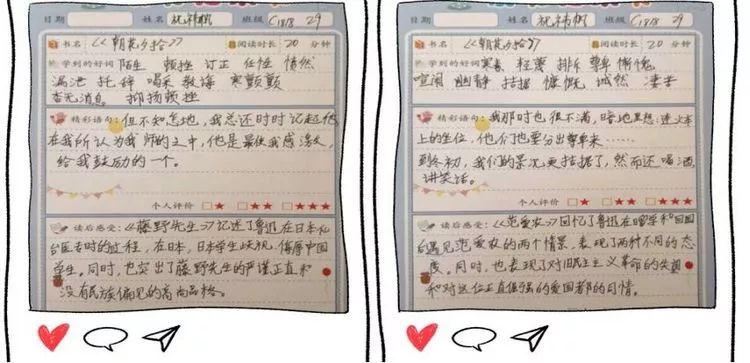 日期 姓名 祝祎帆 班级 C1818 29
书名 《朝花夕拾》 阅读时长 20 分钟
学到的好词 陌生 顿挫 订正 任性 情然
漏泄 托辞 喝采 教诲 寒颤颤
杳无消息 抑扬顿挫
精彩语句：但不知怎地，我总还时时记起他，
在我所认为我师的之中，他是最使我感激，
给我鼓励的一个。
个人评价 □★ □★★ □★★★
读后感受：《藤野先生》记述了鲁迅在日本仙
台医专时的过程，在日本，日本学生歧视、侮辱中国
学生。同时，也突出了藤野先生的严谨正直和
没有民族偏见的高尚品格。
日期 姓名 祝祎帆 班级 C1818 29
书名 《朝花夕拾》 阅读时长 20 分钟
学到的好词 寒暑 轻蔑 排斥 尊卑 惭愧
喧闹 幽静 拮据 慷慨 诚然 凄苦
精彩语句：我那时也很不满，暗地里想：连火车
上的坐位，他们也要分出尊卑来……
到冬初，我们的景况更拮据了，然而还喝酒，
讲笑话。
个人评价 □★ □★★ □★★★
读后感受：《范爱农》回忆了鲁迅在留学和回国
后遇见范爱农的两个情景，表现了两种不同的态
度。同时，也表现了对旧民主主义革命的失望
和对这位正直倔强的爱国者的同情。